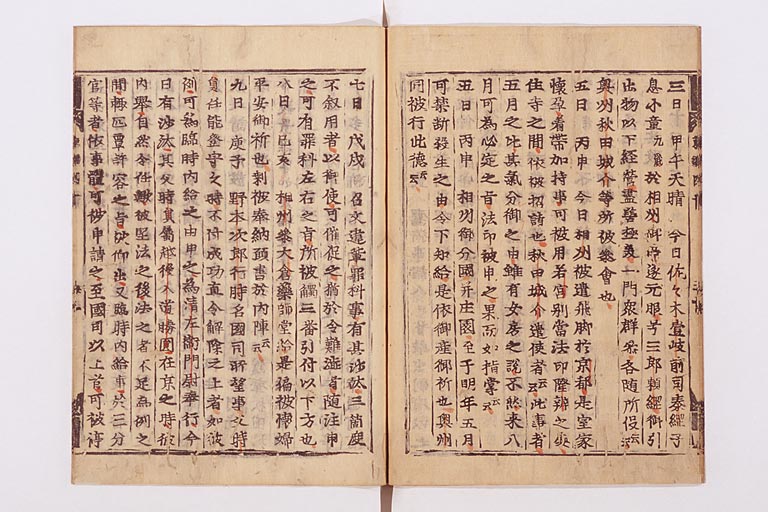 三日 甲午天晴 今日佐々木壹岐前司泰綱子
息小童九歳於相州御亭遂元服号三郎頼綱御引
出物以下経営盡善極美一門衆群参各随所役云云
奥州秋田城介等所被参會也
五日 丙申 今日相州被遣飛脚於京都是室家
懐孕着帯加持事可被用若宮別當法印隆辨之處
住寺之間依被招請也秋田城介遣使者云云此事者
五月之比其氣分御之由雖有女房之説不然来八
月可為必定之旨法印被申之果而如指掌云云
五日 丙申 相州御分國并庄園至于明年五月
可禁断殺生之由今下知給是依御産御祈也奥州
同被行此徳云云
七日 戊戌 召文違背罪科事有其沙汰三箇度
不叙用者以御使可催促之猶於令難渋者随注申
之可有罪科左右之旨所被觸三番引付以下方也
八日 己亥 相州参大倉藥師堂給是偏被懐婦
平安御祈也剰被奉納願書於内陣云云
九日 庚子 野本次郎行時名國司所望事父時
員任能登守之時不付成功直令解除之上者如彼
例可為臨時内給之由申之為清左衛門尉奉行今
日有沙汰其父時員属越後入道勝圓在京之時依
内擧自然令任歟被堅法之後法之者不足為例之
間輙叵覃許容之旨被仰出又臨時内給事於三分
官等者依事躰可被申請之至國司以上者可被停